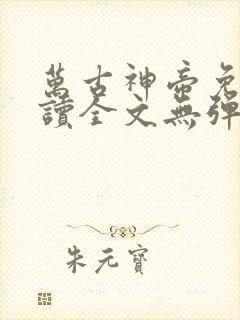 萬古神帝免
讀全文無彈
朱元寶